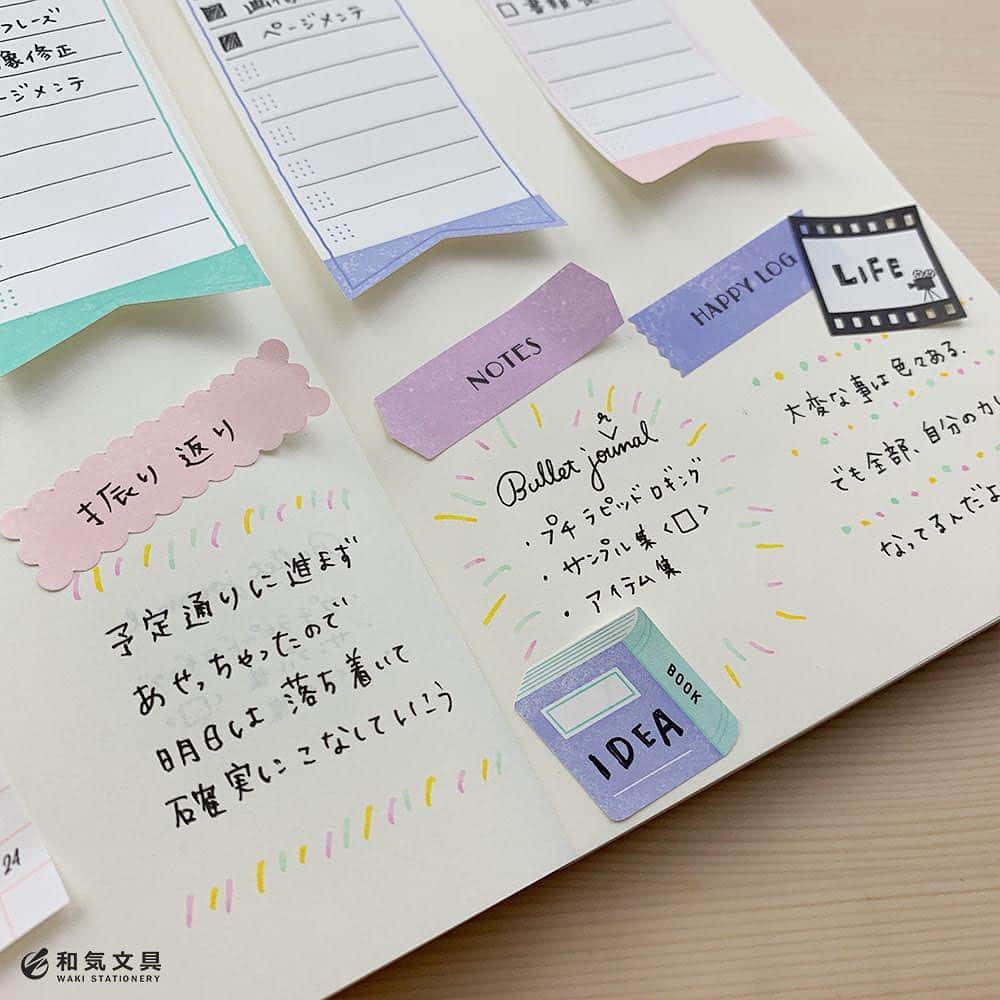 フレーズ
象修正
ージメンテ
ページメンテ
振り返り
予定通りに進まず
あせっちゃったので
明日は落ち着いて
確実にこなしていこう
24
NOTES
Bullet journal
・プチラピッドロギング
・サンプル集〈□〉
・アイテム集
IDEA
BOOK
HAPPY LOG
LIFE
大変な事は色々ある.
でも全部、自分の力に
なってるんだよ
和気文具
WAKI STATIONERY